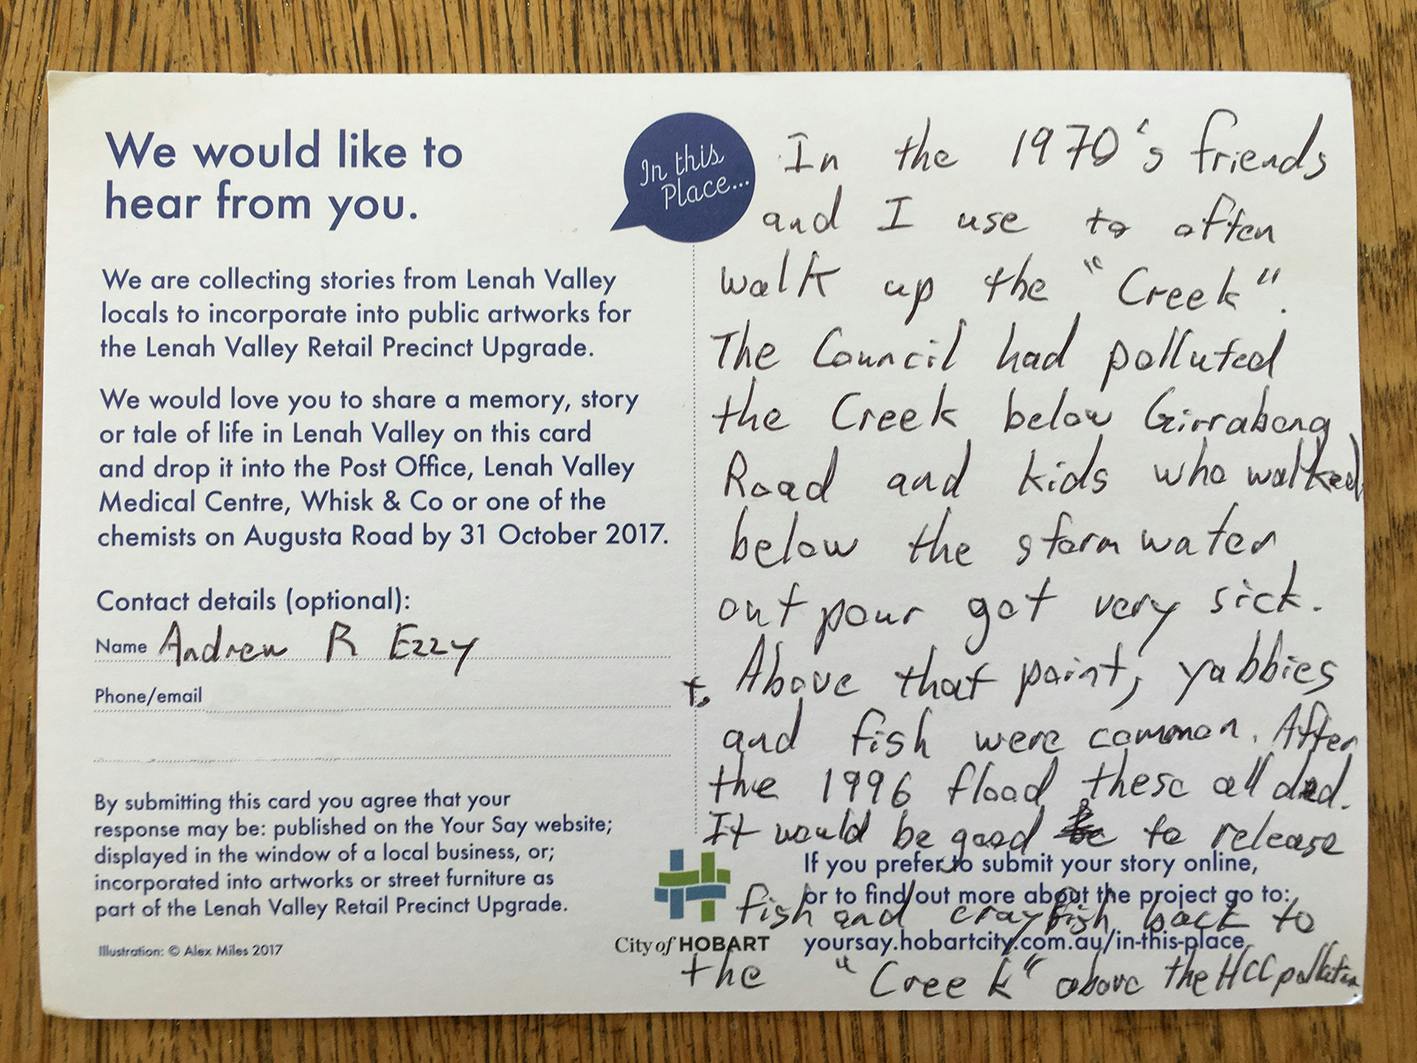 We would like to
hear from you.
We are collecting stories from Lenah Valley
locals to incorporate into public artworks for
the Lenah Valley Retail Precinct Upgrade.
We would love you to share a memory, story
or tale of life in Lenah Valley on this card
and drop it into the Post Office, Lenah Valley
Medical Centre, Whisk & Co or one of the
chemists on Augusta Road by 31 October 2017.
Contact details (optional):
Name Andrew R Ezzy
Phone/email
By submitting this card you agree that your
response may be: published on the Your Say website;
displayed in the window of a local business, or;
incorporated into artworks or street furniture as
part of the Lenah Valley Retail Precinct Upgrade.
Illustration: © Alex Miles 2017
In this
Place...
In the 1970's friends
and I use to often
walk up the "Creek".
The Council had polluted
the Creek below Girrabong
Road and kids who walked
below the storm water
out pour got very sick.
Above that point, yabbies
and fish were common. After
the 1996 flood these all died.
It would be good to release
fish and crayfish back to
the "Creek" above the HCC pollution.
If you prefer to submit your story online,
or to find out more about the project go to:
yoursay.hobartcity.com.au/in-this-place
City of HOBART